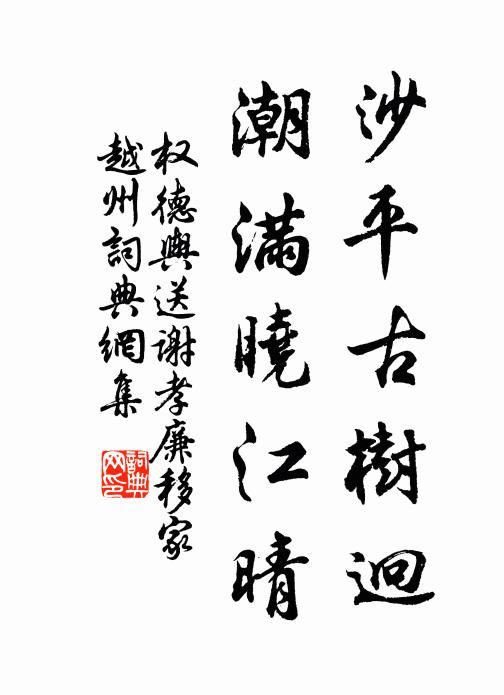 沙平古樹迴
潮滿曉江晴
权德輿送謝孝廉移家
越州詞典網集
詞典网印